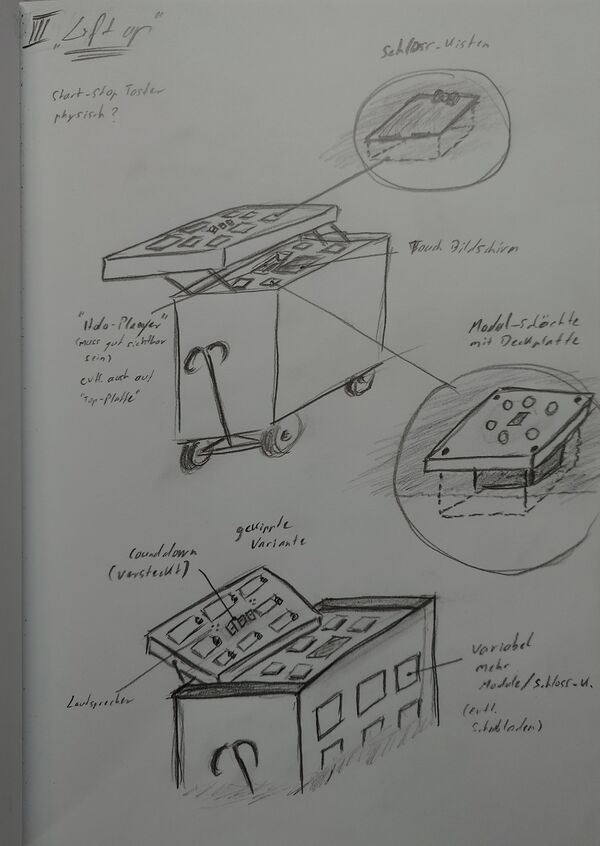 III "Lift up"
Start-Stop Taster
physisch?
Schloss-Kisten
Touch Bildschirm
(muss gut sichtbar
sein)
evtl. auch auf
"Top-Platte"
Modul-Schächte
mit Deckplatte
gekippte
Variante
Countdown
(versteckt)
Lautsprecher
Variabel
mehr
Module/Schloss-K.
(evtl.
Schubladen)